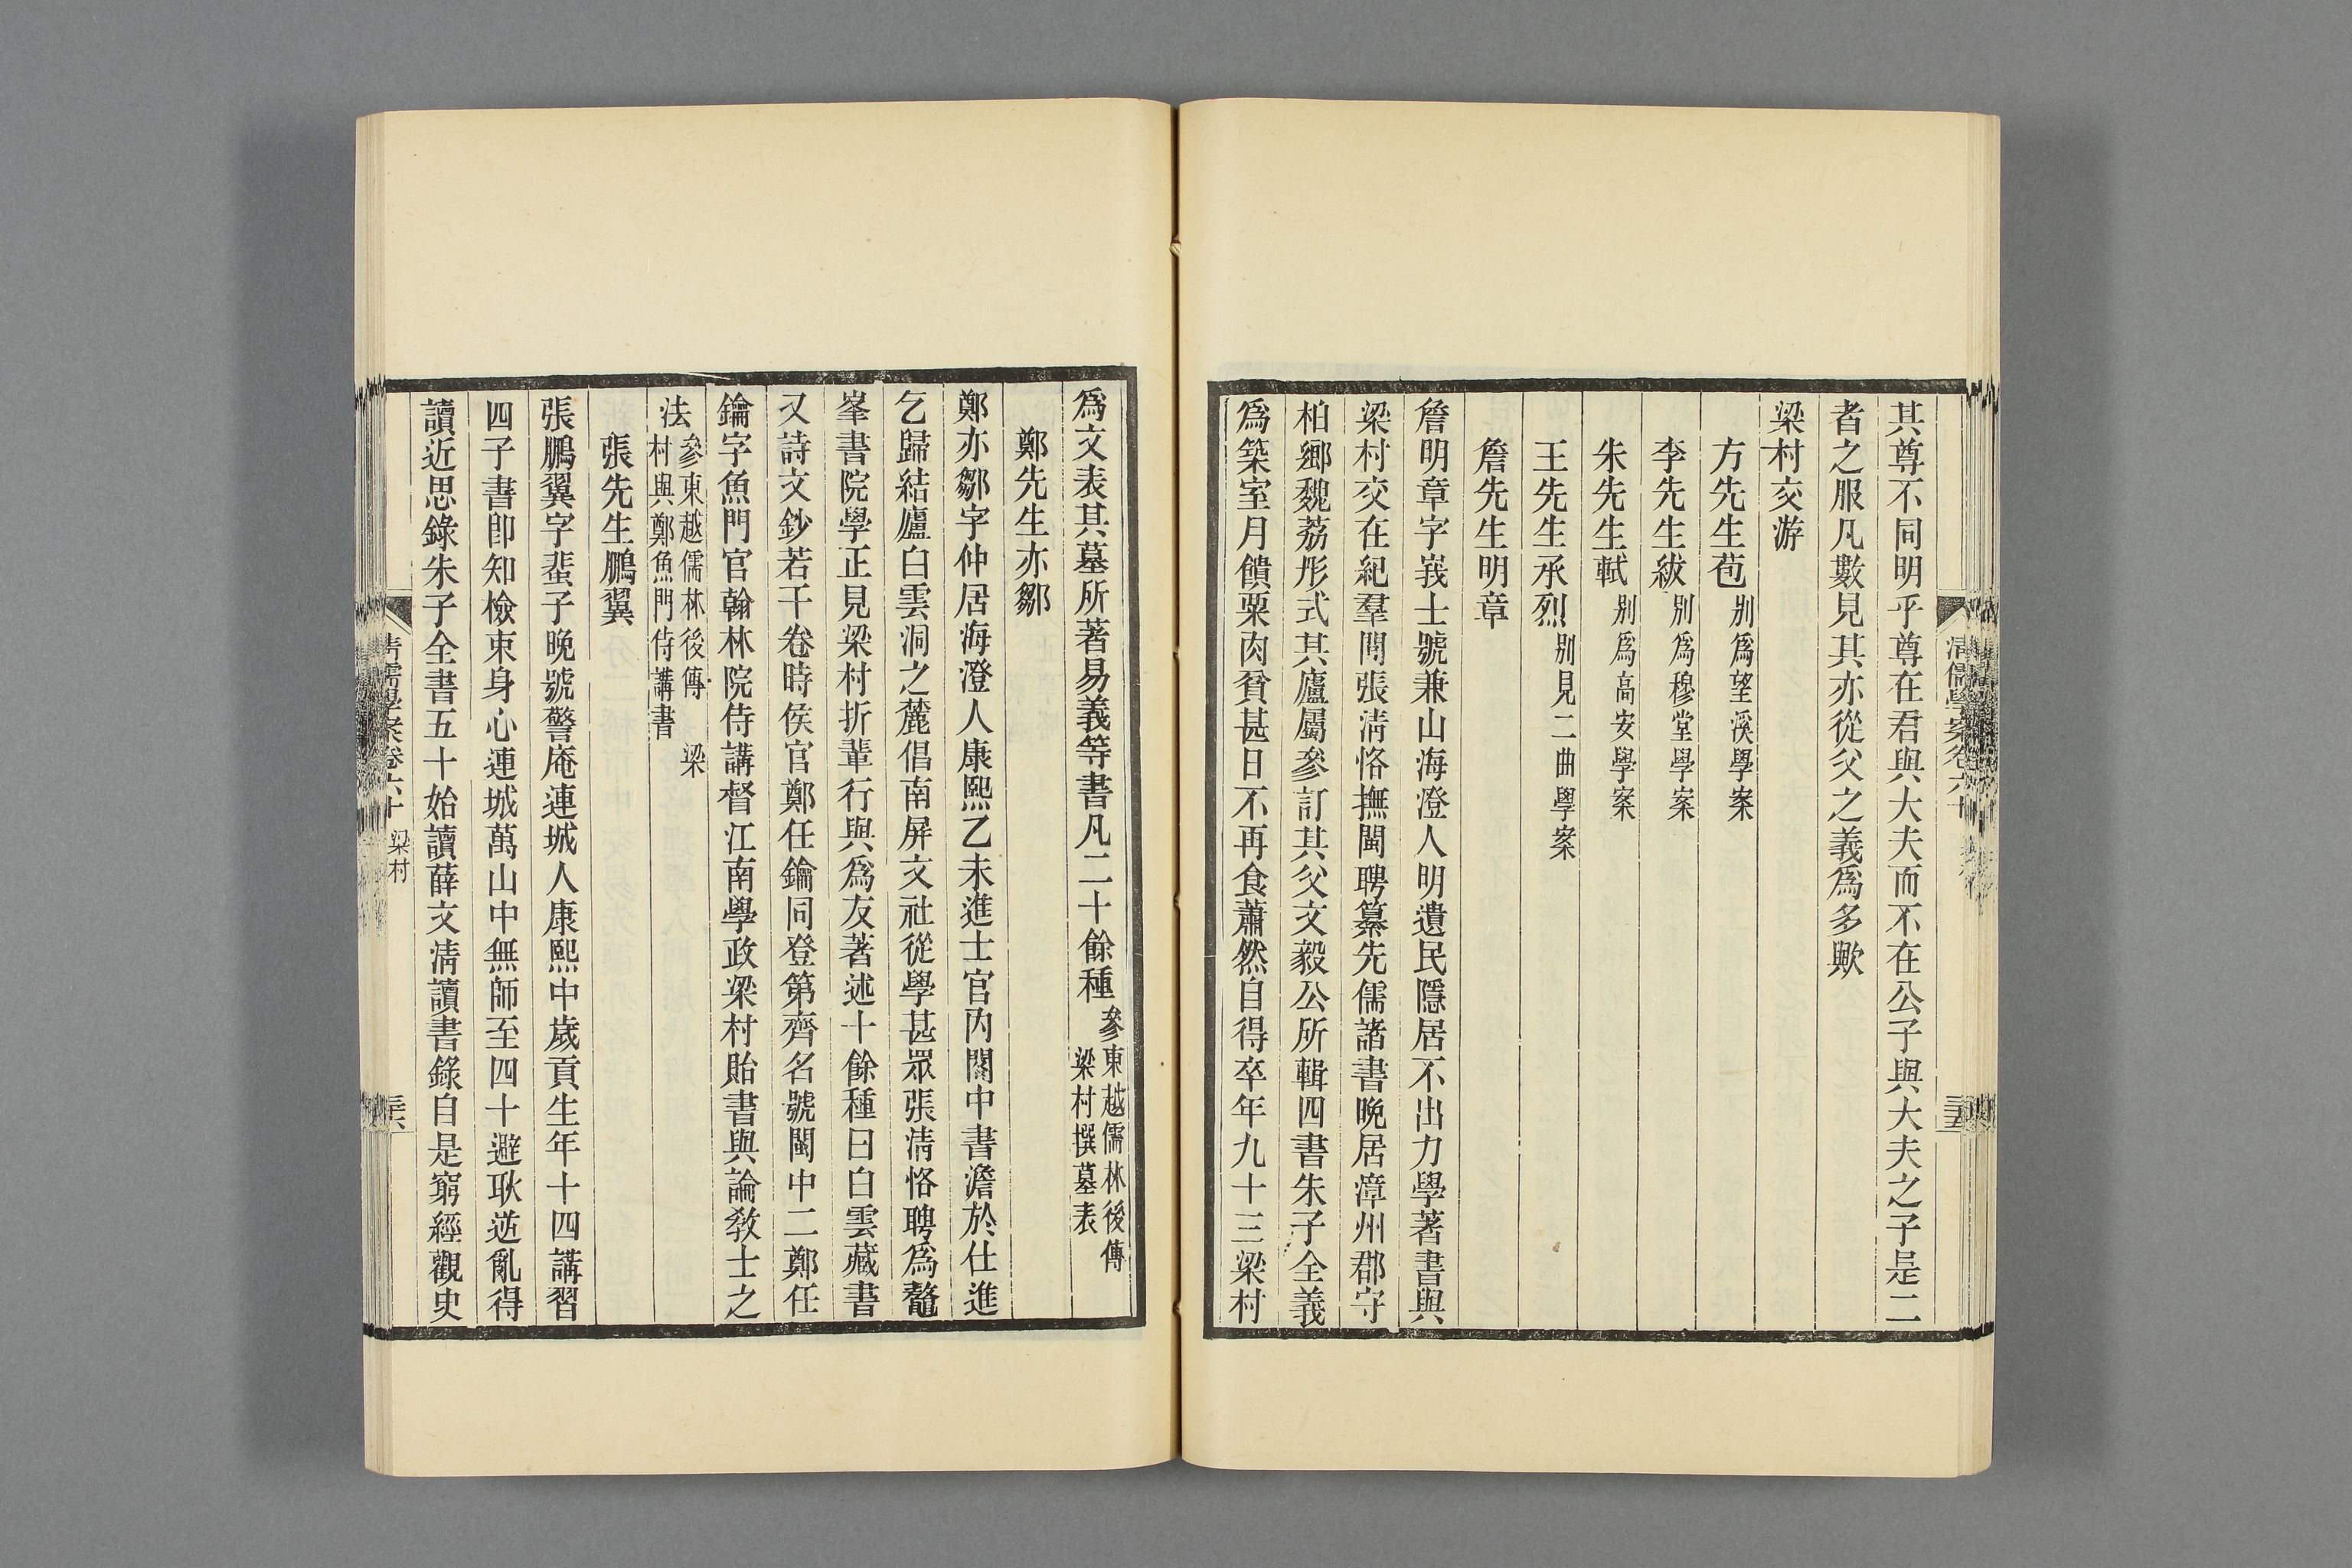 其尊不同明乎尊在君與大夫而不在公子與大夫之子是二
者之服凡數見其亦從父之義爲多歟
梁村交游
方先生苞別爲望溪學案
李先生紱別爲穆堂學案
朱先生軾別爲高安學案
王先生承烈別見二曲學案
詹先生明章
詹明章字峩士號兼山海澄人明遺民隱居不出力學著書與
梁村交在紀羣間張淸恪撫閩聘纂先儒諸書晚居漳州郡守
柏鄉魏荔彤式其廬屬參訂其父文毅公所輯四書朱子全義
爲築室月饋粟肉貧甚日不再食蕭然自得卒年九十三梁村
淸儒學案卷六十
三五
爲文表其墓所著易義等書凡二十餘種參東越儒林後傳
梁村撰墓表
鄭先生亦鄒
鄭亦鄒字仲居海澄人康熙乙未進士官內閣中書澹於仕進
乞歸結廬白雲洞之麓倡南屏文社從學甚眾張淸恪聘爲鼇
峯書院學正見梁村折輩行與爲友著述十餘種曰白雲藏書
又詩文鈔若干卷時侯官鄭任鑰同登第齊名號閩中二鄭任
鑰字魚門官翰林院侍講督江南學政梁村貽書與論敎士之
法參東越儒林後傳 梁
村與鄭魚門侍講書
張先生鵬翼
張鵬翼字蜚子晚號警庵連城人康熙中歲貢生年十四講習
四子書卽知檢束身心連城萬山中無師至四十避耿逆亂得
讀近思錄朱子全書五十始讀薛文淸讀書錄自是窮經觀史
淸儒學案卷六十 梁村
三六